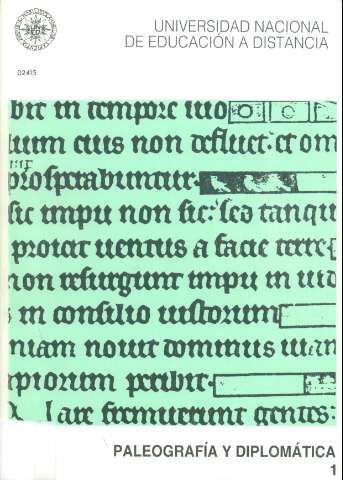 UNIVERSIDAD NACIONAL
DE EDUCACIÓN A DISTANCIA
02415
bit in tempore suo
lium eius non defluet: et om
prosperabuntur.
sic impii non sic: sed tanqu
proicit uentus a facie terre
non resurgunt impii in iud
in consilio iustorum
niam nouit dominus uian
piorum peribit.
are fremuerunt gentes:
PALEOGRAFÍA Y DIPLOMÁTICA
1